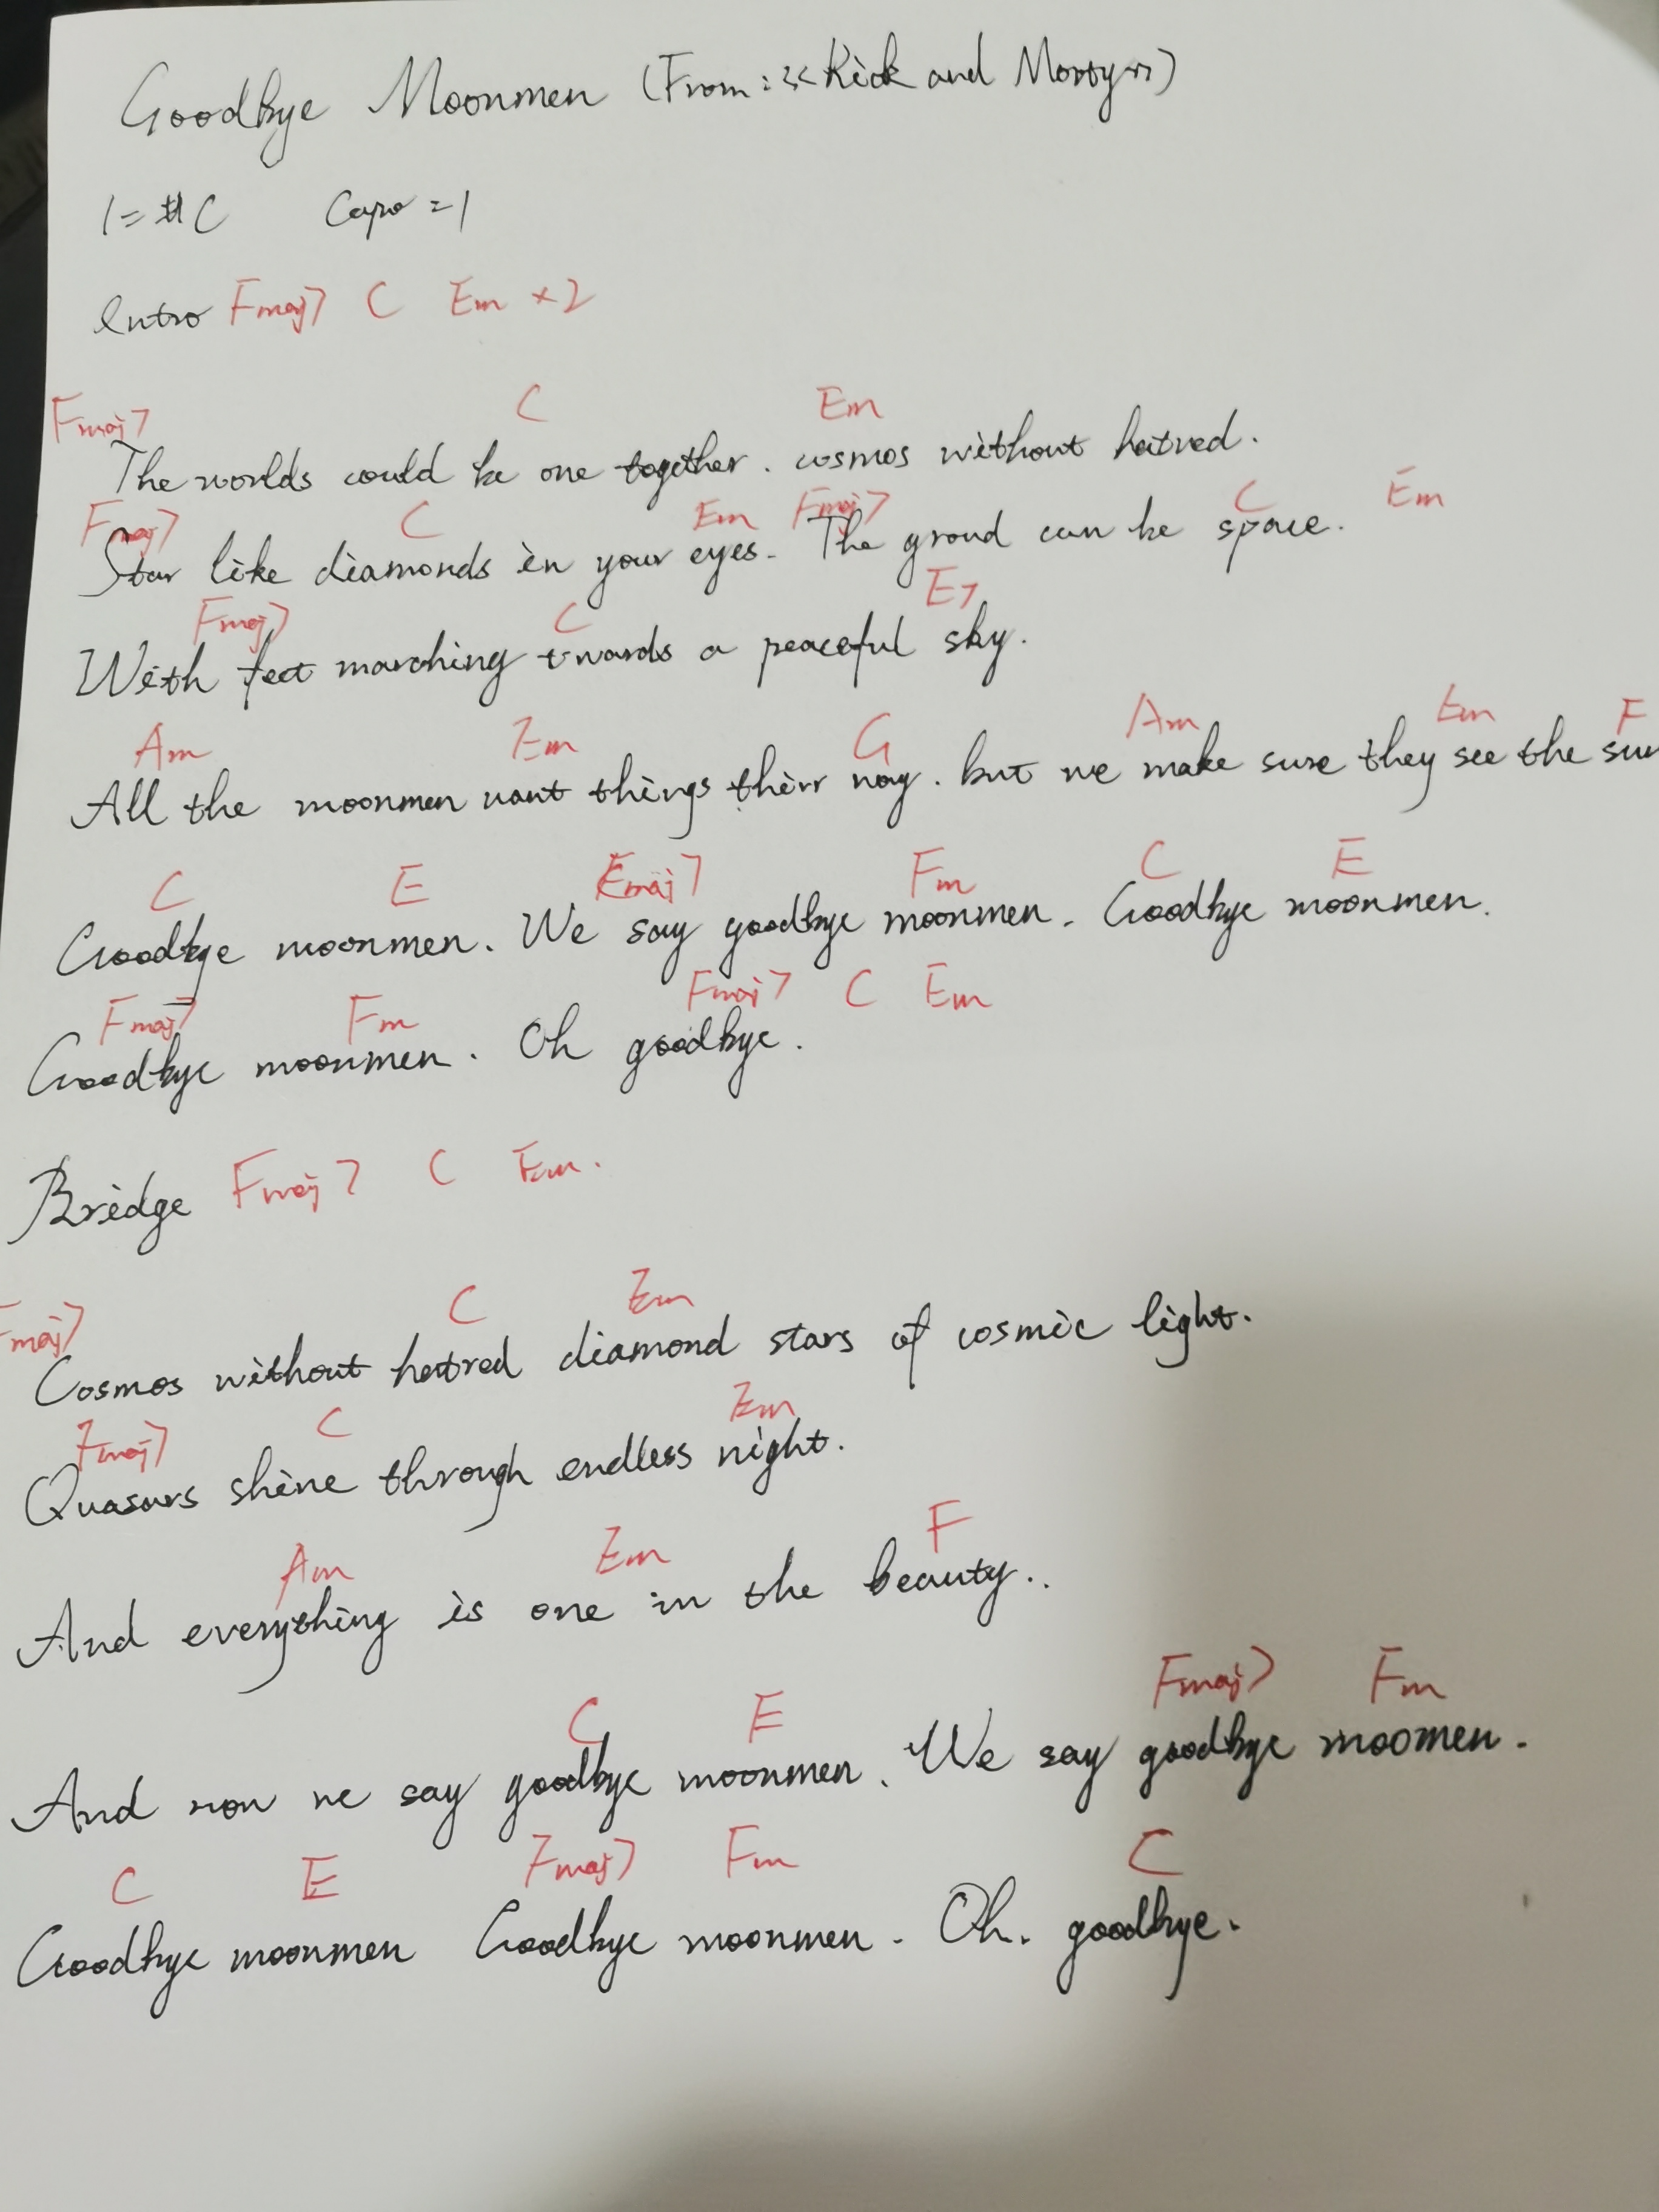 Goodbye Moonmen (From: «Rick and Morty»)
1=#C Capo=1
Intro Fmaj7 C Em ×2
Fmaj7 C Em
The worlds could be one together. cosmos without hatred.
Fmaj7 C Em Fmaj7 C Em
Star like diamonds in your eyes. The groud can be space.
Fmaj7 C E7
With feet marching towards a peaceful sky.
Am Em G Am Em F
All the moonmen want things their way. but we make sure they see the sun
C E Fmaj7 Fm C E
Goodbye moonmen. We say goodbye moonmen. Goodbye moonmen.
Fmaj7 Fm Fmaj7 C Em
Goodbye moonmen. Oh goodbye.
Bridge Fmaj7 C Em.
Fmaj7 C Em
Cosmos without hatred diamond stars of cosmic light.
Fmaj7 C Em
Quasars shine through endless night.
Am Em F
And everything is one in the beauty..
C E Fmaj7 Fm
And now we say goodbye moonmen. We say goodbye moomen.
C E Fmaj7 Fm C
Goodbye moonmen Goodbye moonmen. Oh. goodbye.